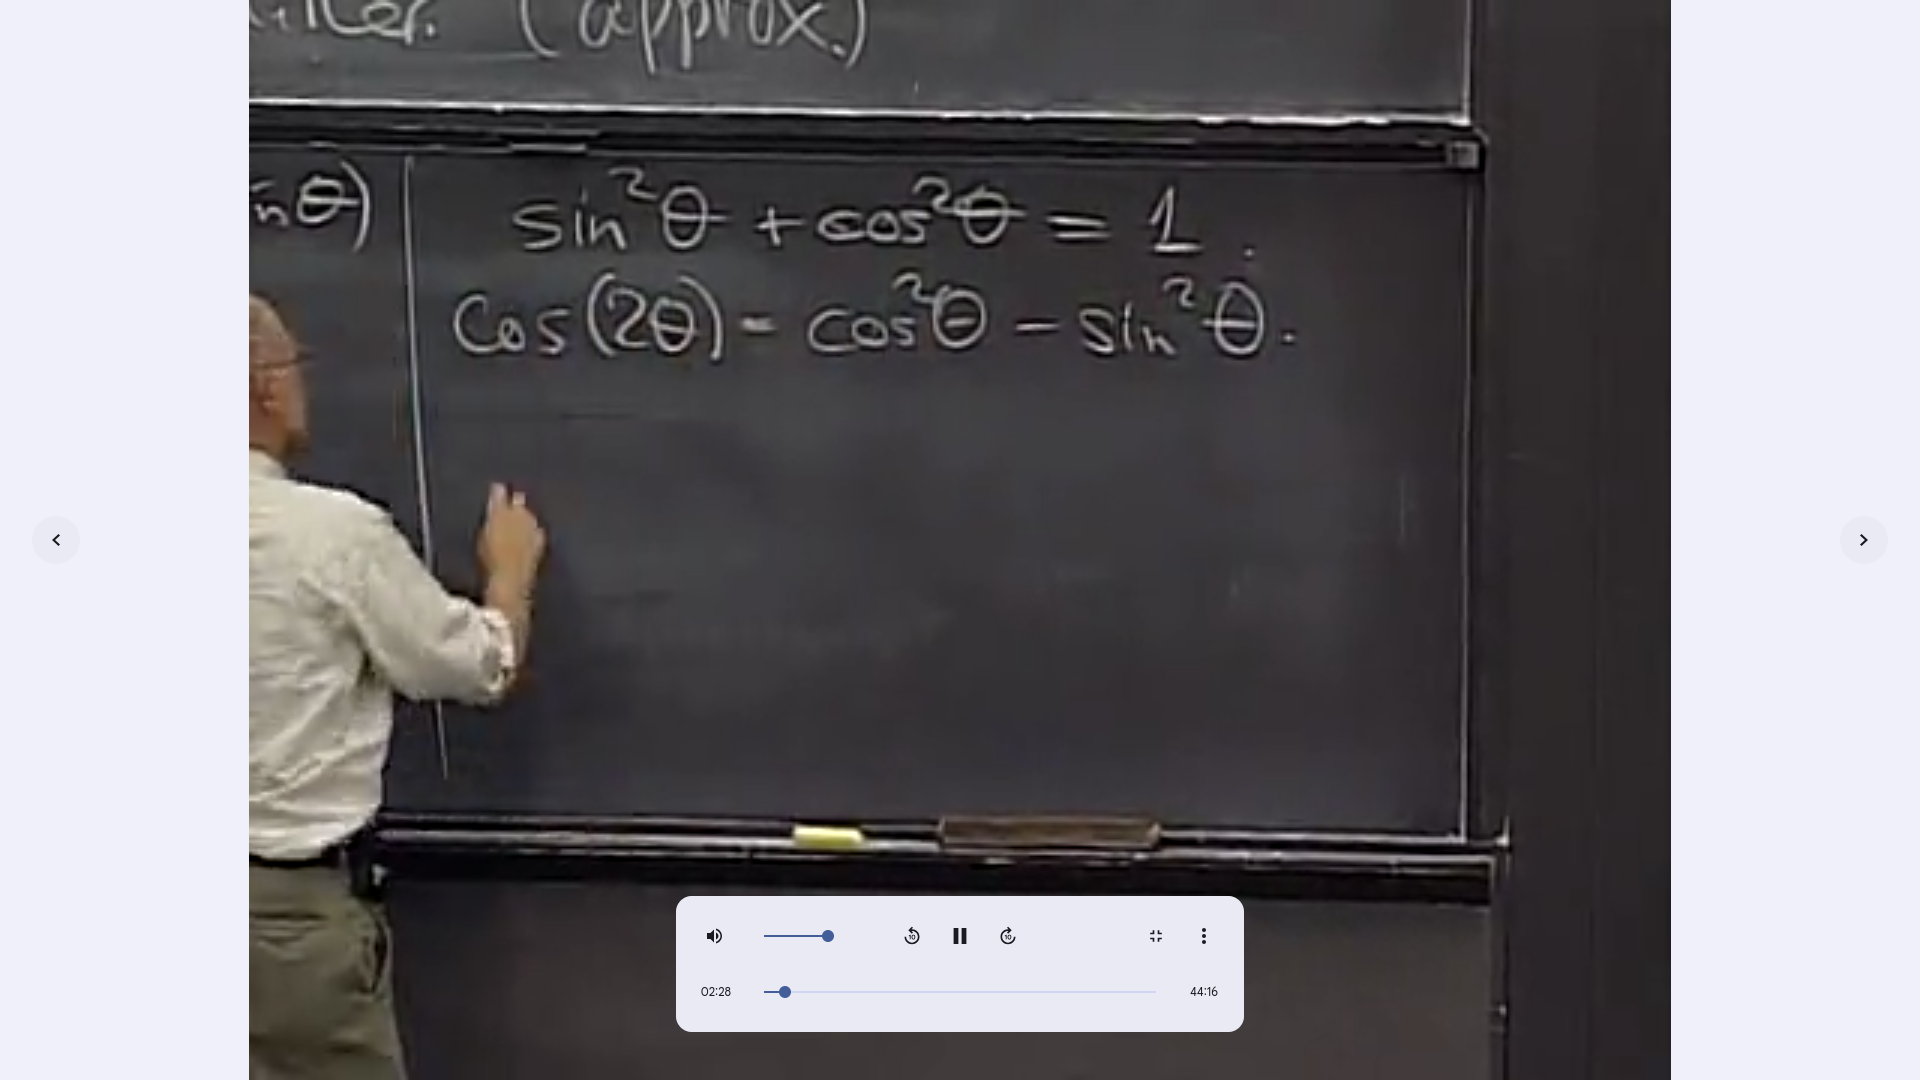 (approx.)
θ)
sin²θ + cos²θ = 1.
Cos(2θ) = cos²θ - sin²θ.
10
10
02:28
44:16